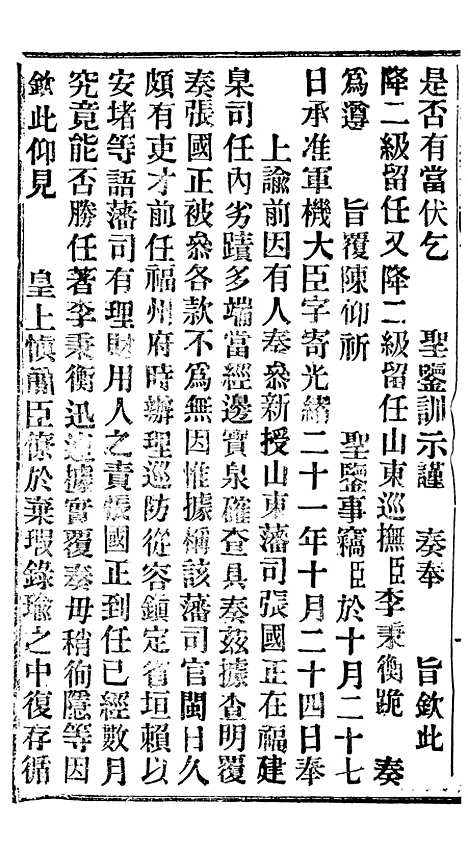 是否有當伏乞　聖鑒訓示謹　奏奉　旨欽此
降二級留任又降二級留任山東巡撫臣李秉衡跪　奏
爲遵　旨覆陳仰祈　聖鑒事竊臣於十月二十七
日承准軍機大臣字寄光緒二十一年十月二十四日奉
上諭前因有人奏叅新授山東藩司張國正在福建
臬司任內劣蹟多端當經邊寶泉確查具奏茲據查明覆
奏張國正被叅各款不爲無因惟據稱該藩司官閩日久
頗有吏才前任福州府時辦理巡防從容鎮定省垣賴以
安堵等語藩司有理財用人之責張國正到任已經數月
究竟能否勝任著李秉衡迅速據實覆奏毋稍徇隱等因
欽此仰見　皇上愼肅臣僚於棄瑕錄瑜之中復存循